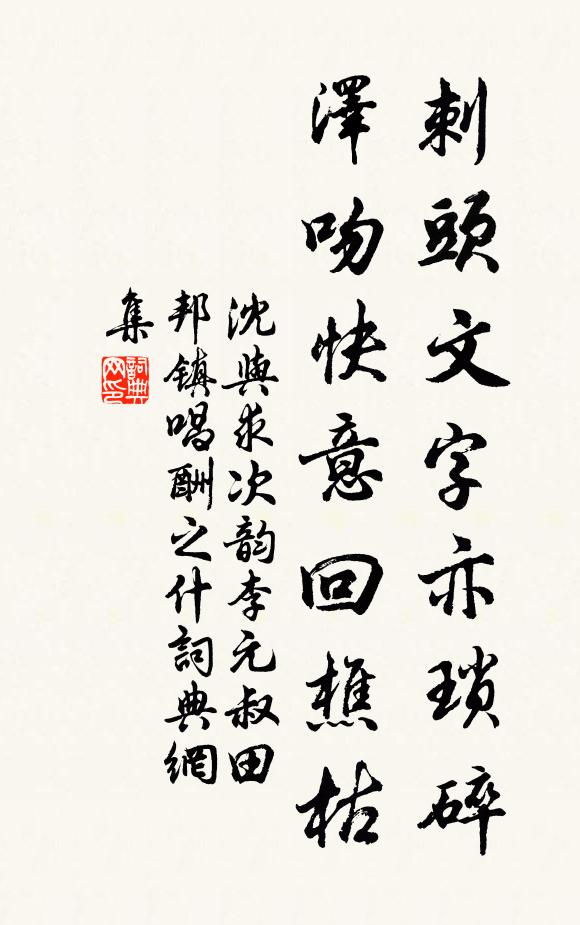 刺頭文字亦瑣碎
澤吻快意回樵枯
沈與求次韵李元叔田
邦鎮唱酬之什詞典網
集
詞典网印